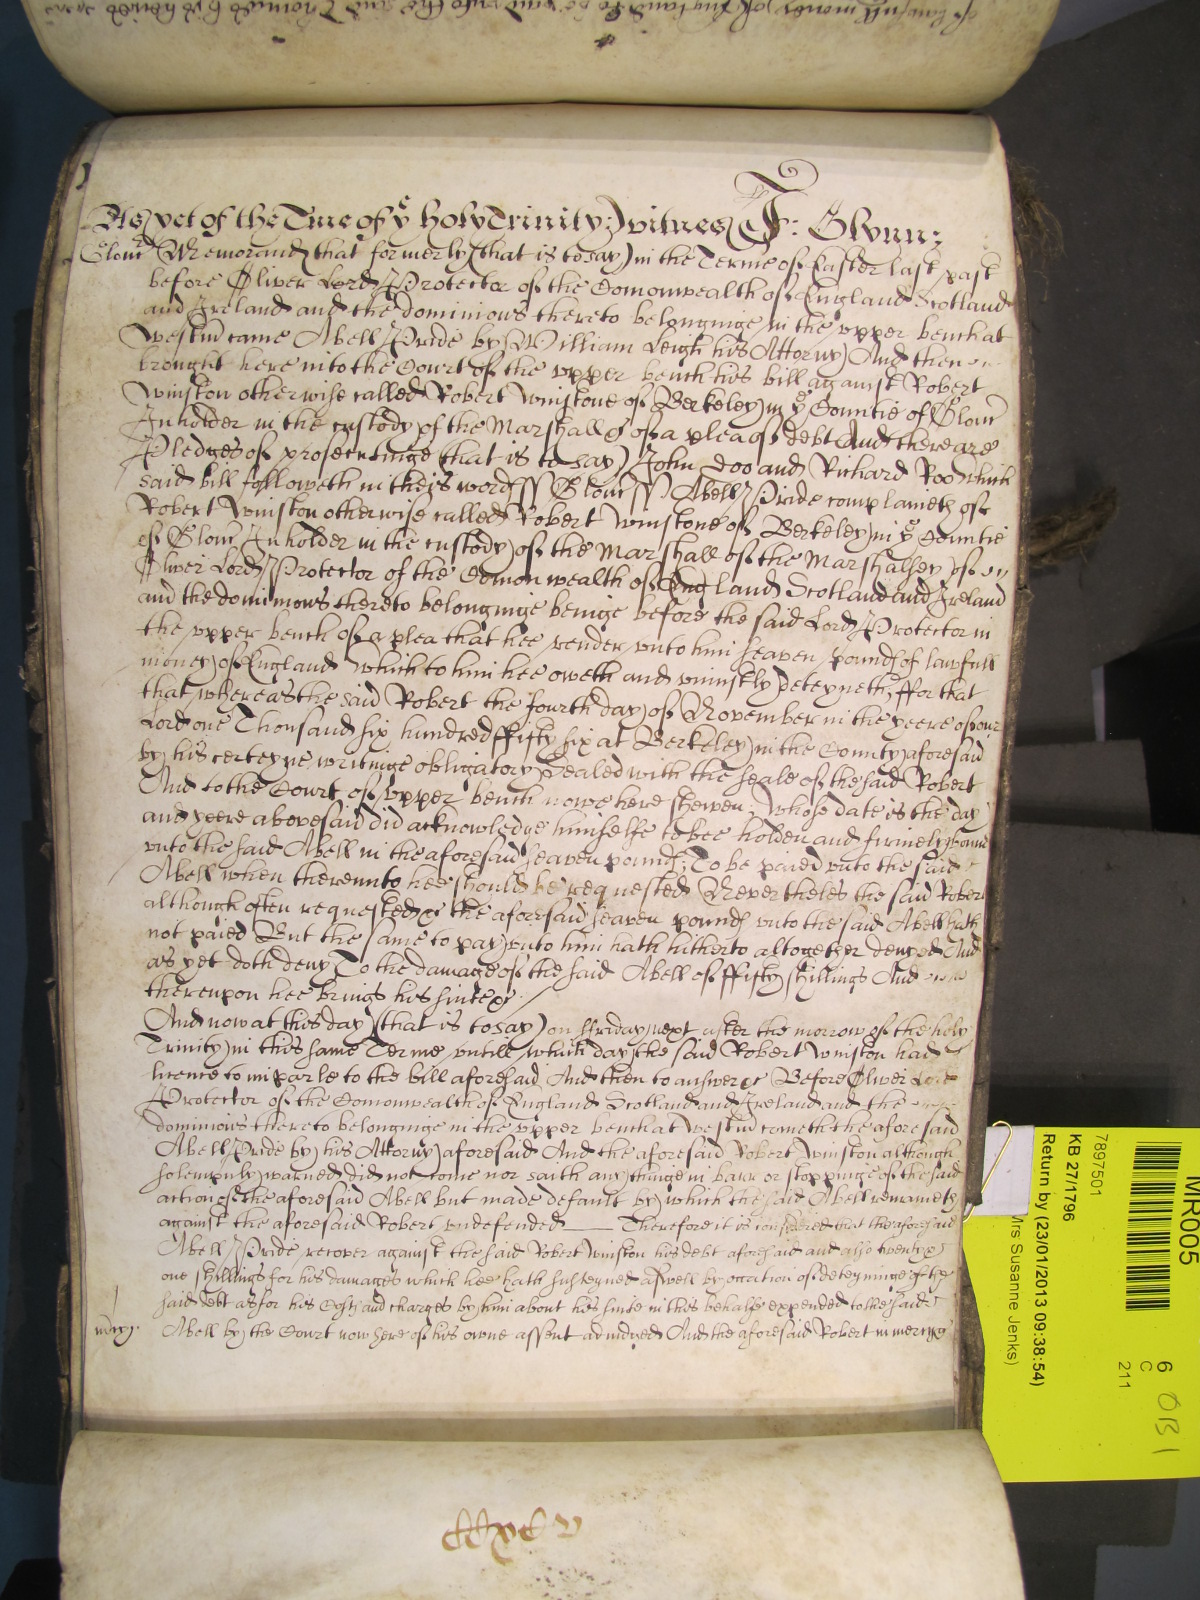 As yet of the Tme of ye holy Trinity: witnes J: Glynn:
Glouc Memorand that formerly (that is to say) in the Terme of Easter last past
before Oliver Lord Protector of the Comonwealth of England Scotland
and Ireland and the dominions thereto belonginge in the upper bench at
Westm came Abell Pride by William Leigh his Attorny And then
brought here into the Court of the upper bench his bill against Robert
Winston otherwise called Robert Winstone of Berkeley in ye Countie of Glouc
Inholder in the custody of the Marshall &c of a plea of debt And there are
Pledges of prosecutinge (that is to say) John Doo and Richard Roo which
said bill followeth in theis words ss Glouc ss Abell Pride complaineth of
Robert Winston otherwise called Robert Winstone of Berkeley in ye Countie
of Glouc Inholder in the custody of the Marshall of the Marshalsey of
Oliver Lord Protector of the Comonwealth of England Scotland and Ireland
and the dominions thereto belonginge beinge before the said Lord Protector in
the upper bench of a plea that hee render unto him seaven pounds of lawfull
money of England which to him hee oweth and uniustly deteyneth, ffor that
that whereas the said Robert the fourth day of November in the yeere of our
Lord one Thousand six hundred ffifty six at Berkeley in the County aforesaid
by his certeyne writinge obligatory Sealed with the seale of the said Robert
And to the Court of upper bench nowe here shewen: whose date is the day
and yeere abovesaid did acknowledge himselfe to bee holden and firmely bound
unto the said Abell in the aforesaid seaven pounds: To be paied unto the said
Abell when thereunto hee should be requested Nevertheles the said Robert
although often requested &c the aforesaid seaven pounds unto the said Abell hath
not paied But the same to pay unto him hath hitherto altogether denyed And
as yet doth deny To the damage of the said Abell of ffifty shillings And
thereupon hee brings his suite &c
And now at this day (that is to say) on ffriday next after the morrow of the holy
Trinity in this same Terme untill which day the said Robert Winston had
licence to imparle to the bill aforesaid And then to answer &c Before Oliver Lord
Protector of the Comonwealth of England Scotland and Ireland and the
dominions thereto belonginge in the upper bench at Westm cometh the aforesaid
Abell Pride by his Attorny aforesaid And the aforesaid Robert Winston although
solempnly warned did not come nor saith any thinge in barr or stoppinge of the said
action of the aforesaid Abell but made default by which the said Abell remaineth
against the aforesaid Robert undefended Therefore it is considered that the aforesaid
Abell Pride recover against the said Robert Winston his debt aforesaid and also twenty &
one shillings for his damages which hee hath susteyned aswell by occation of deteyninge of the
said debt as for his Costs and charges by him about his suite in this behalfe expended to the said
mercy. Abell by the Court now here of his owne assent adiudged And the aforesaid Robert in mercy &c
MR005
6
C
211
OB1
7897501
KB 27/1796
Return by (23/01/2013 09:38:54)
Mrs Susanne Jenks)